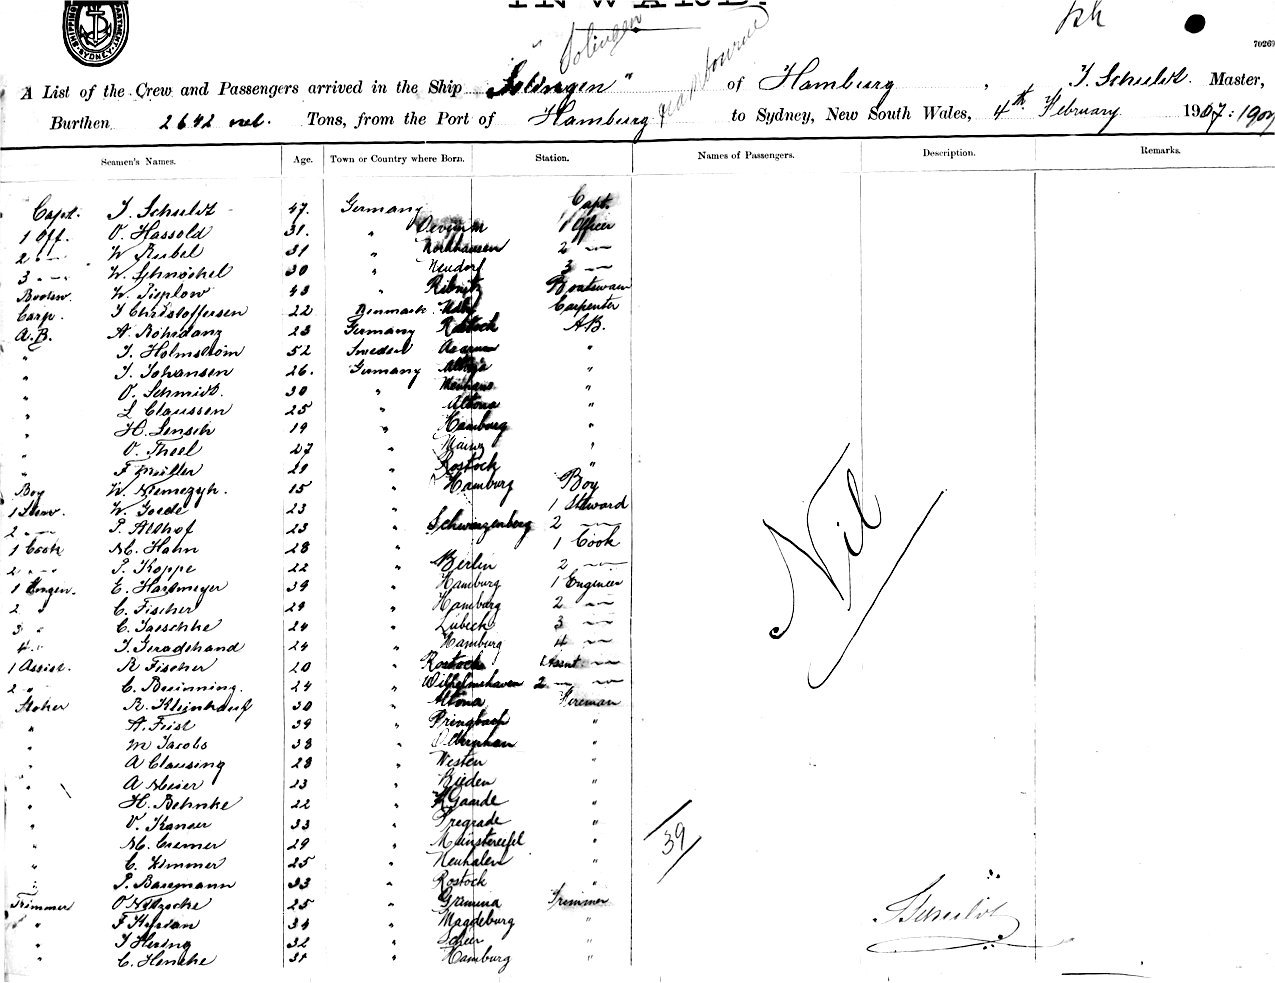 SHIPPING
SYDNEY
INWARD.
Solingen
70269
A List of the Crew and Passengers arrived in the Ship "Solingen" of Hamburg, J. Schuldt. Master,
Burthen 2642 net. Tons, from the Port of Hamburg to Sydney, New South Wales, 4th February 1907: 1907
Seamen's Names. Age. Town or Country where Born. Station. Names of Passengers. Description. Remarks.
Capt. J. Schuldt 47. Germany Capt.
1 Off. O. Hassold 31. " 1 Officer
2 " W. Rubel 31 " Nordhausen 2 "
3 " W. Schnöckel 30 " Neudorf 3 "
Bootsw. W. Pieplow 43 " Ribnitz Boatswain
Carp. J Christoffersen 22 Denmark Carpenter
A.B. A. Röhrdanz 23 Germany Rostock A.B.
" J. Holmström 52 Sweden "
" J. Johansen 26. Germany "
" O. Schmidt. 30 " Neuhaus "
" L Claussen 25 " Altona "
" H. Lensch 19 " Hamburg "
" O. Theel 27 " Mainz "
" F Müller 21 " Rostock "
Boy W. Niemczyk. 15 " Hamburg Boy
1 Stew. W. Goede 23 " 1 Steward
2 " P. Aldhof 23 " Schwarzenberg 2 "
1 Cook M. Hahn 28 " 1 Cook
2 " P. Koppe 22 " Berlin 2 "
1 Engin. E. Hartmeyer 39 " Hamburg 1 Engineer
2 " C. Fischer 29 " Hamburg 2 "
3 " C. Jaeschke 24 " Lübeck 3 "
4 " J. Geradehand 24 " Hamburg 4 "
1 Assist. R Fischer 20 " Rostock 1 Assnt "
2 " C. Brünning. 24 " Wilhelmshaven 2 "
Stoker R. Kleinhauf 30 " Altona Fireman
" A. Feist 39 " "
" M Jacobs 33 " "
" A Clausing 23 " Westen "
" A Meier 23 " Rieden "
" H. Behnke 22 " Gaarde "
" V. Kanser 33 " Pregrade "
" M. Cremer 29 " Münstereifel "
" C. Zimmer 25 " Neuhalen "
" P. Bargmann 33 " Rostock "
Trimmer O Nitzsche 25 " Grimma Trimmer
" F 34 " Magdeburg "
" J Hering 32 " "
" C. Hencke 31 " Hamburg "
Nil
39
J Schuldt